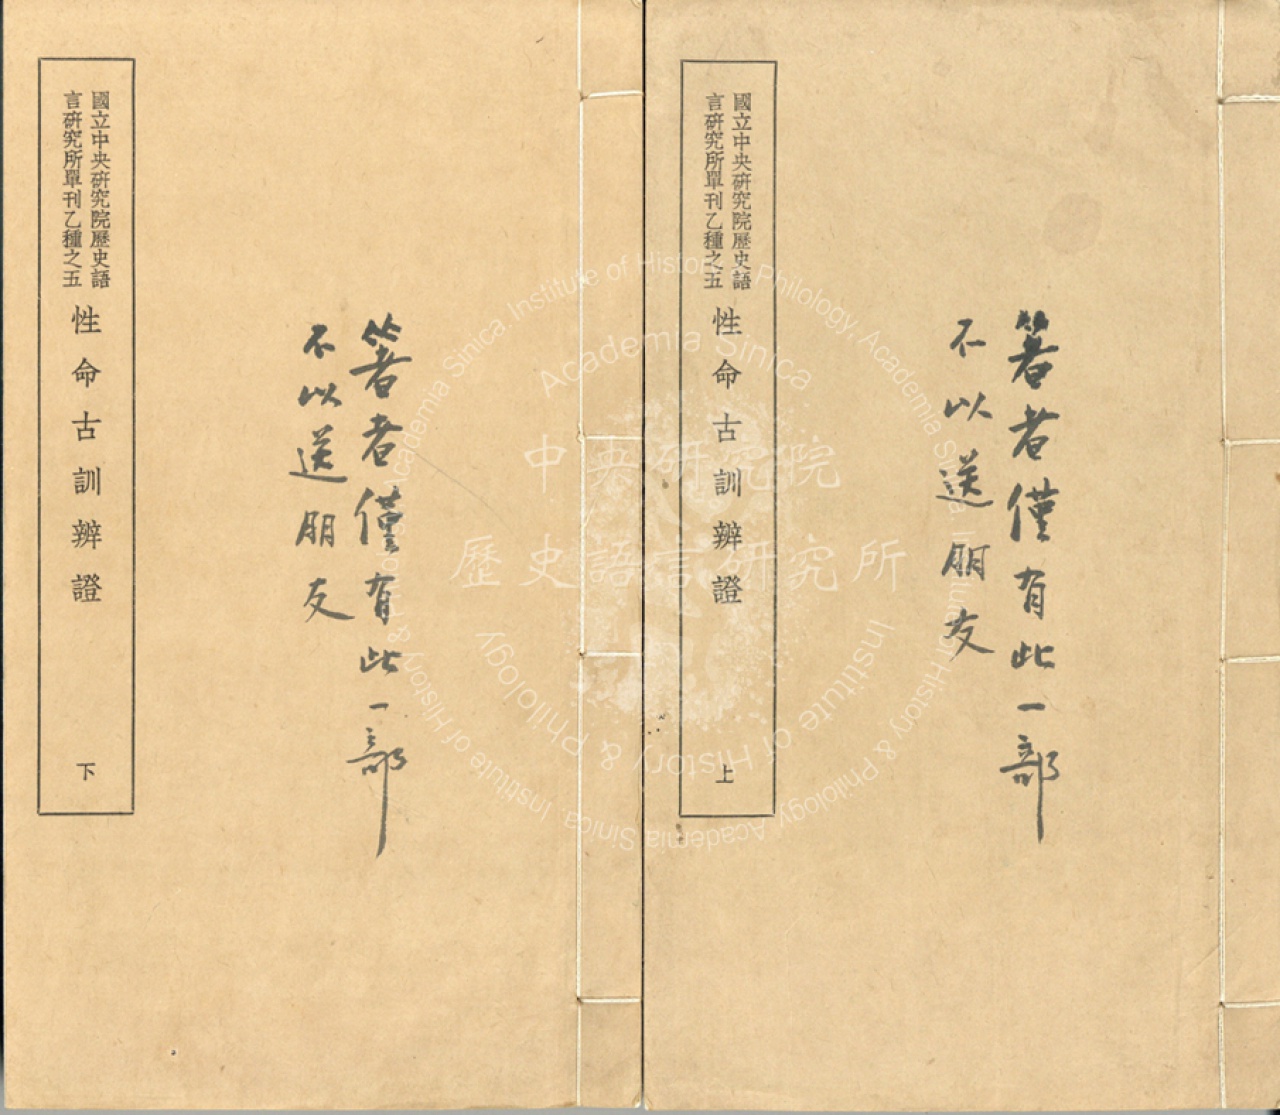 國立中央研究院歷史語
言研究所單刊乙種之五
性命古訓辨證
上
著者僅有此一部
不以送朋友
國立中央研究院歷史語
言研究所單刊乙種之五
性命古訓辨證
下
著者僅有此一部
不以送朋友
中央研究院
歷史語言研究所
Academia Sinica
Institute of History & Philology
Institute of History & Philology, Academia Sinica